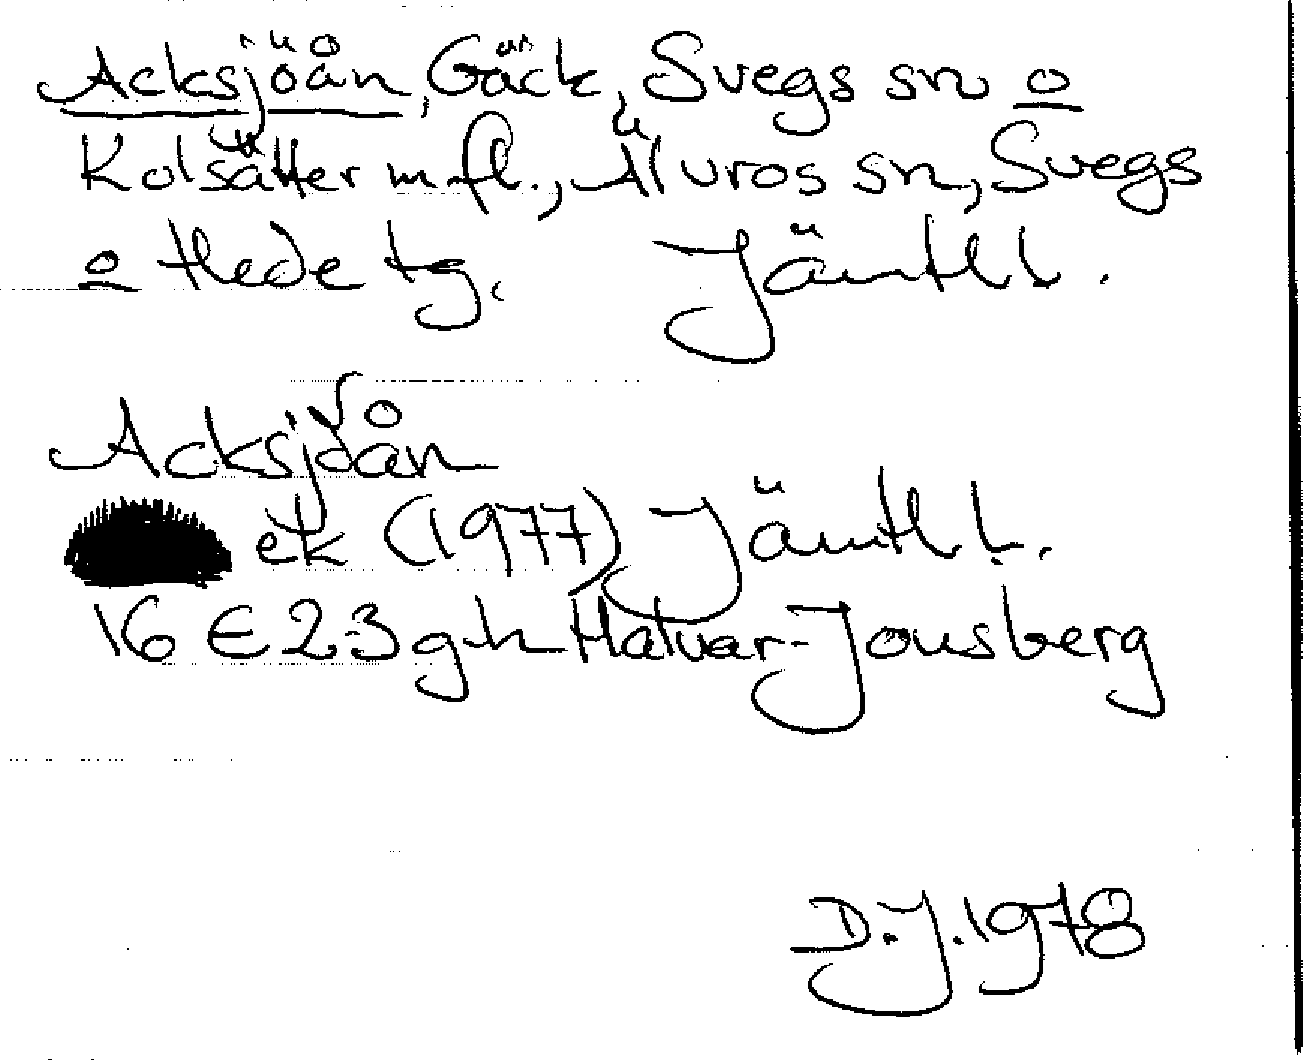 Acksjöån, Gäck, Svegs sn o
Kolsätter m.fl., Älvros sn, Svegs
o Hede tg. Jämtl l.
Acksjöån
ek (1977) Jämtl l.
16 E 2-3 g-h Hatvar-Jonsberg
D.J. 1978